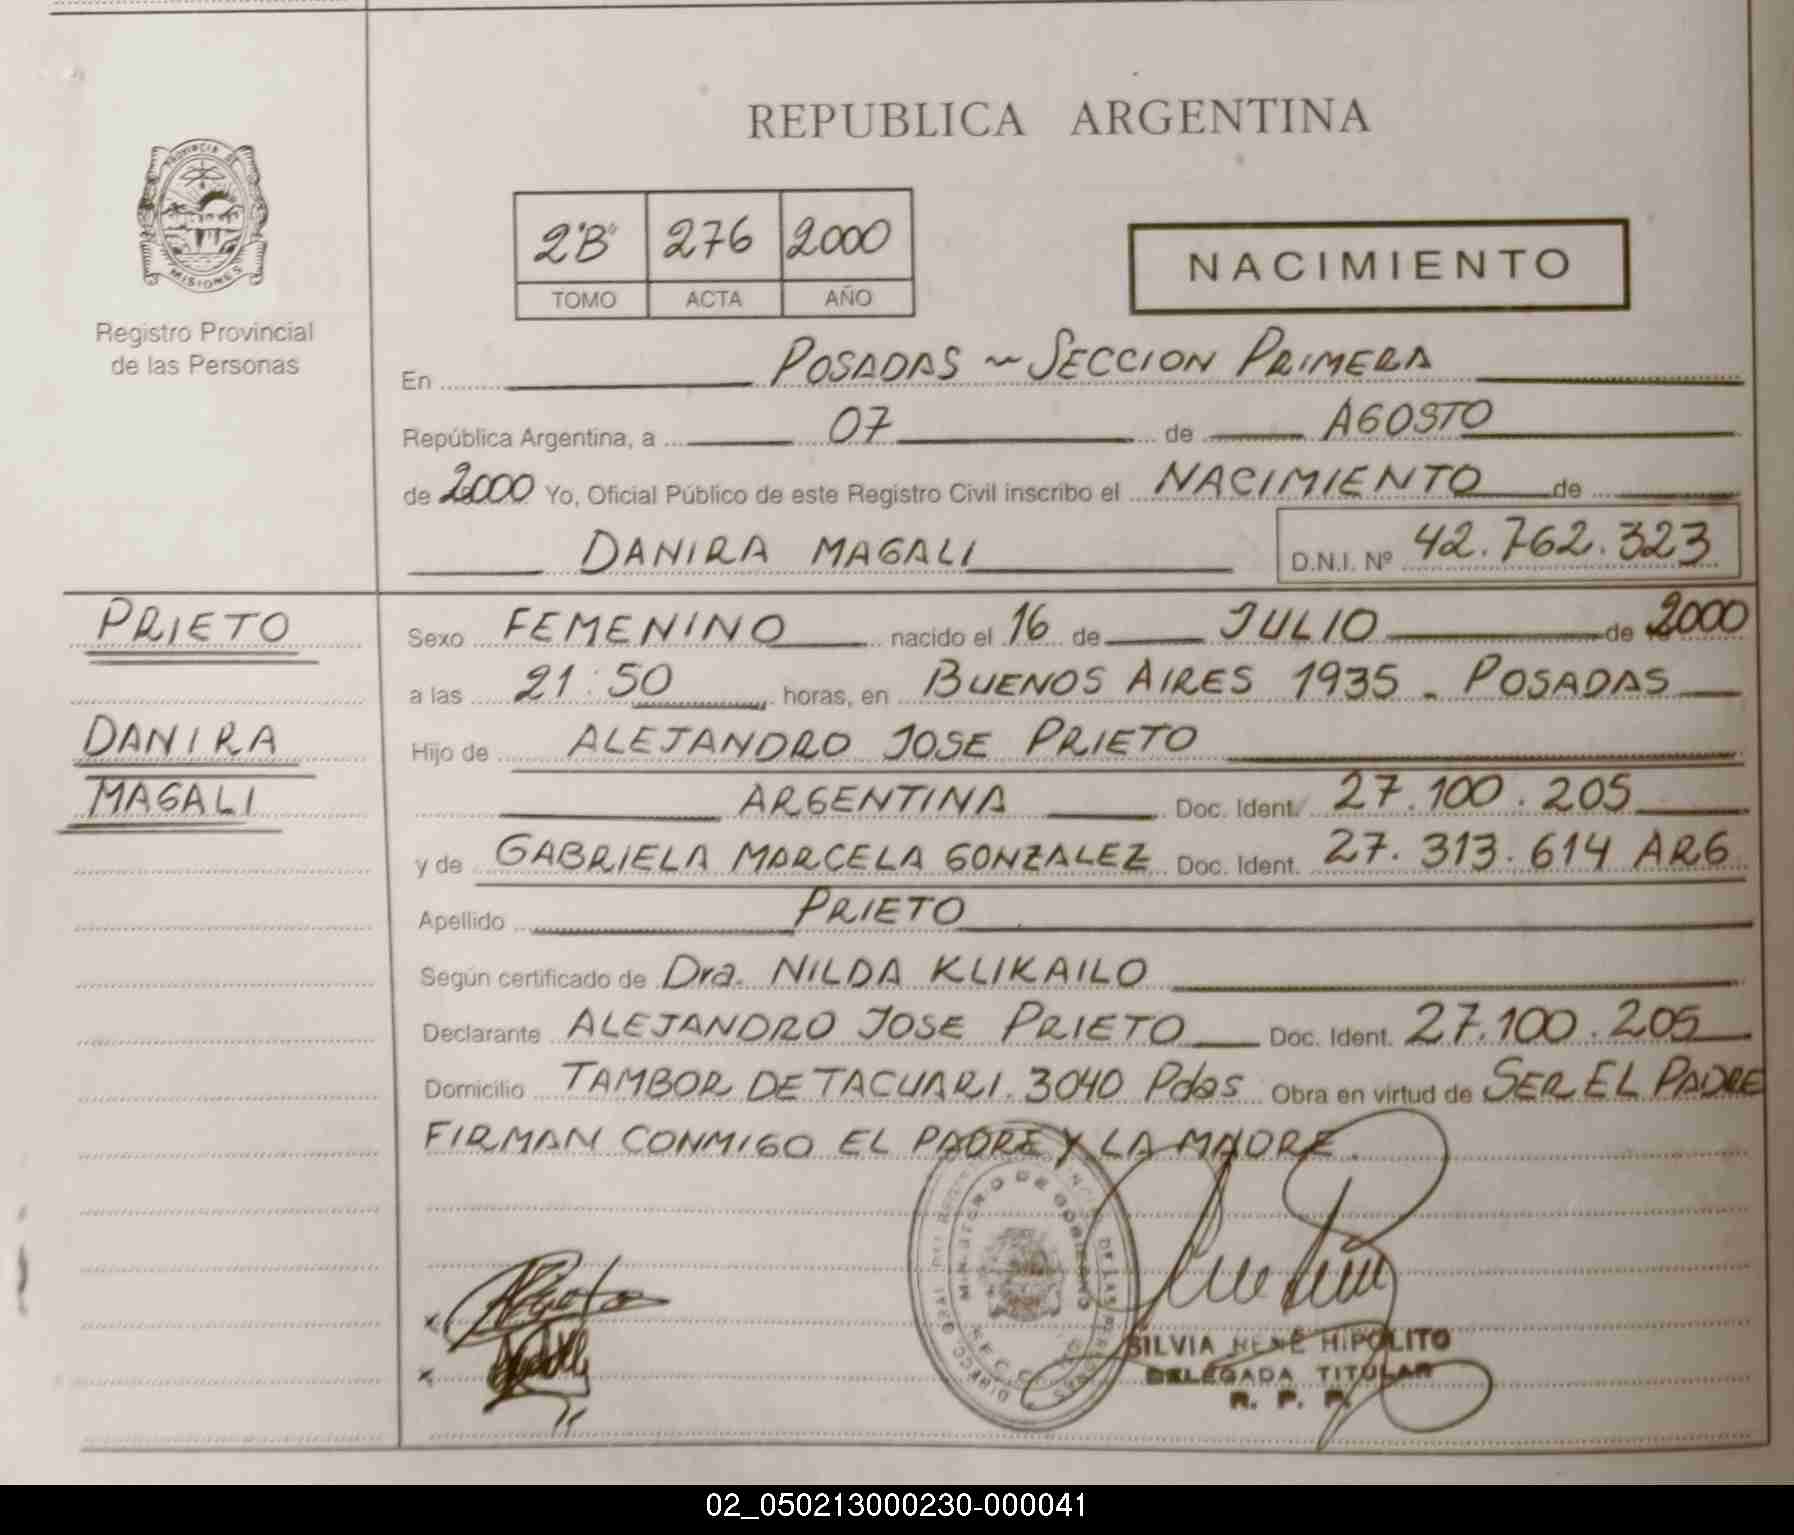 REPUBLICA ARGENTINA
PROVINCIA DE
MISIONES
Registro Provincial
de las Personas
2"B" 276 2000
TOMO ACTA AÑO
NACIMIENTO
En POSADAS ~ SECCION PRIMERA
República Argentina, a 07 de AGOSTO
de 2000 Yo, Oficial Público de este Registro Civil inscribo el NACIMIENTO de
DANIRA MAGALI D.N.I. Nº 42.762.323
PRIETO
DANIRA
MAGALI
Sexo FEMENINO nacido el 16 de JULIO de 2000
a las 21:50 horas, en BUENOS AIRES 1935 - POSADAS
Hijo de ALEJANDRO JOSE PRIETO
ARGENTINA Doc. Ident. 27.100.205
y de GABRIELA MARCELA GONZALEZ Doc. Ident. 27.313.614 ARG
Apellido PRIETO
Según certificado de Dra. NILDA KLIKAILO
Declarante ALEJANDRO JOSE PRIETO Doc. Ident. 27.100.205
Domicilio TAMBOR DE TACUARI. 3040 Pdas Obra en virtud de SER EL PADRE
FIRMAN CONMIGO EL PADRE Y LA MADRE.
MINISTERIO DE GOBIERNO
SILVIA RENE HIPOLITO
DELEGADA TITULAR
R. P. P.
02_050213000230-000041